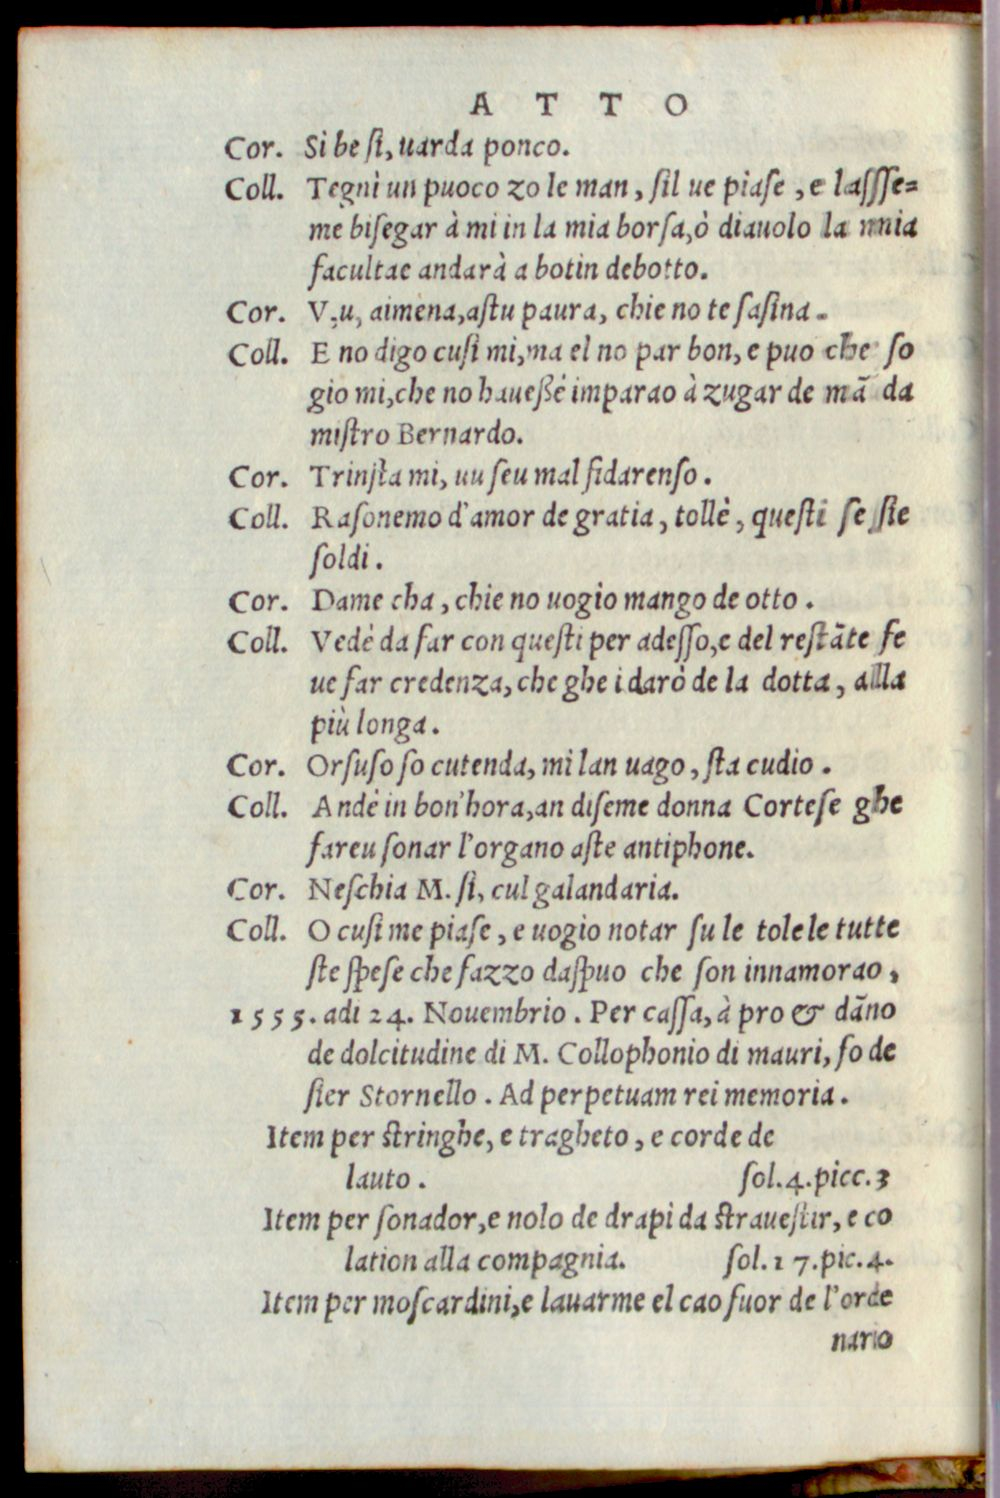 ATTO
Cor. Sì be sì, uarda ponco.
Coll. Tegnì un puoco zo le man, sil ue piase, e lassse=
me bisegar à mi in la mia borsa, ò diauolo la mia
facultae andarà a botin debotto.
Cor. V,u, aimena, astu paura, chie no te sasina.
Coll. E no digo cusi mi, ma el no par bon, e puo che so
gio mi, che no hauessè imparao à zugar de mā da
mistro Bernardo.
Cor. Trinsta mi, uu seu mal fidarenso.
Coll. Rasonemo d'amor de gratia, tollè, questi se sie
soldi.
Cor. Dame cha, chie no uogio mango de otto.
Coll. Vedè da far con questi per adesso, e del restāte fe
ue far credenza, che ghe i darò de la dotta, alla
più longa.
Cor. Orsuso so cutenda, mi lan uago, sta cudio.
Coll. Andè in bon'hora, an diseme donna Cortese ghe
fareu sonar l'organo aste antiphone.
Cor. Neschia M. sì, cul galandaria.
Coll. O cusi me piase, e uogio notar su le tolele tutte
ste spese che fazzo daspuo che son innamorao,
1555. adi 24. Nouembrio. Per cassa, à pro & dāno
de dolcitudine di M. Collophonio di mauri, fo de
sier Stornello. Ad perpetuam rei memoria.
Item per stringhe, e tragheto, e corde de
lauto. sol.4.picc.3
Item per sonador, e nolo de drapi da strauestir, e co
lation alla compagnia. sol.17.pic.4.
Item per moscardini, e lauarme el cao fuor de l'orde
nario